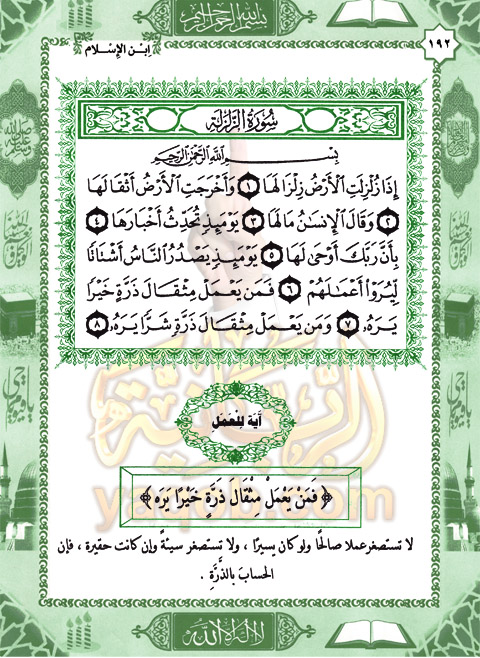 بسم الله الرحمن الرحيم
ابن الإسلام
١٩٢
سُورَةُ الزَّلْزَلَةِ
بِسْمِ اللَّهِ الرَّحْمَٰنِ الرَّحِيمِ
إِذَا زُلْزِلَتِ الْأَرْضُ زِلْزَالَهَا ١ وَأَخْرَجَتِ الْأَرْضُ أَثْقَالَهَا
٢ وَقَالَ الْإِنسَٰنُ مَا لَهَا ٣ يَوْمَئِذٍ تُحَدِّثُ أَخْبَارَهَا ٤
بِأَنَّ رَبَّكَ أَوْحَىٰ لَهَا ٥ يَوْمَئِذٍ يَصْدُرُ النَّاسُ أَشْتَاتًا
لِّيُرَوْا أَعْمَٰلَهُمْ ٦ فَمَن يَعْمَلْ مِثْقَالَ ذَرَّةٍ خَيْرًا
يَرَهُۥ ٧ وَمَن يَعْمَلْ مِثْقَالَ ذَرَّةٍ شَرًّا يَرَهُۥ ٨
آيَة لِلْعَمَلِ
﴿ فَمَنْ يَعْمَلْ مِثْقَالَ ذَرَّةٍ خَيْرًا يَرَه ﴾
لا تستصغر عملا صالحًا ولو كان يسيرًا ، ولا تستصغر سيئةً وإن كانت حقيرة ، فإن
الحسابَ بالذَّرَّةِ .
لا إله إلا الله